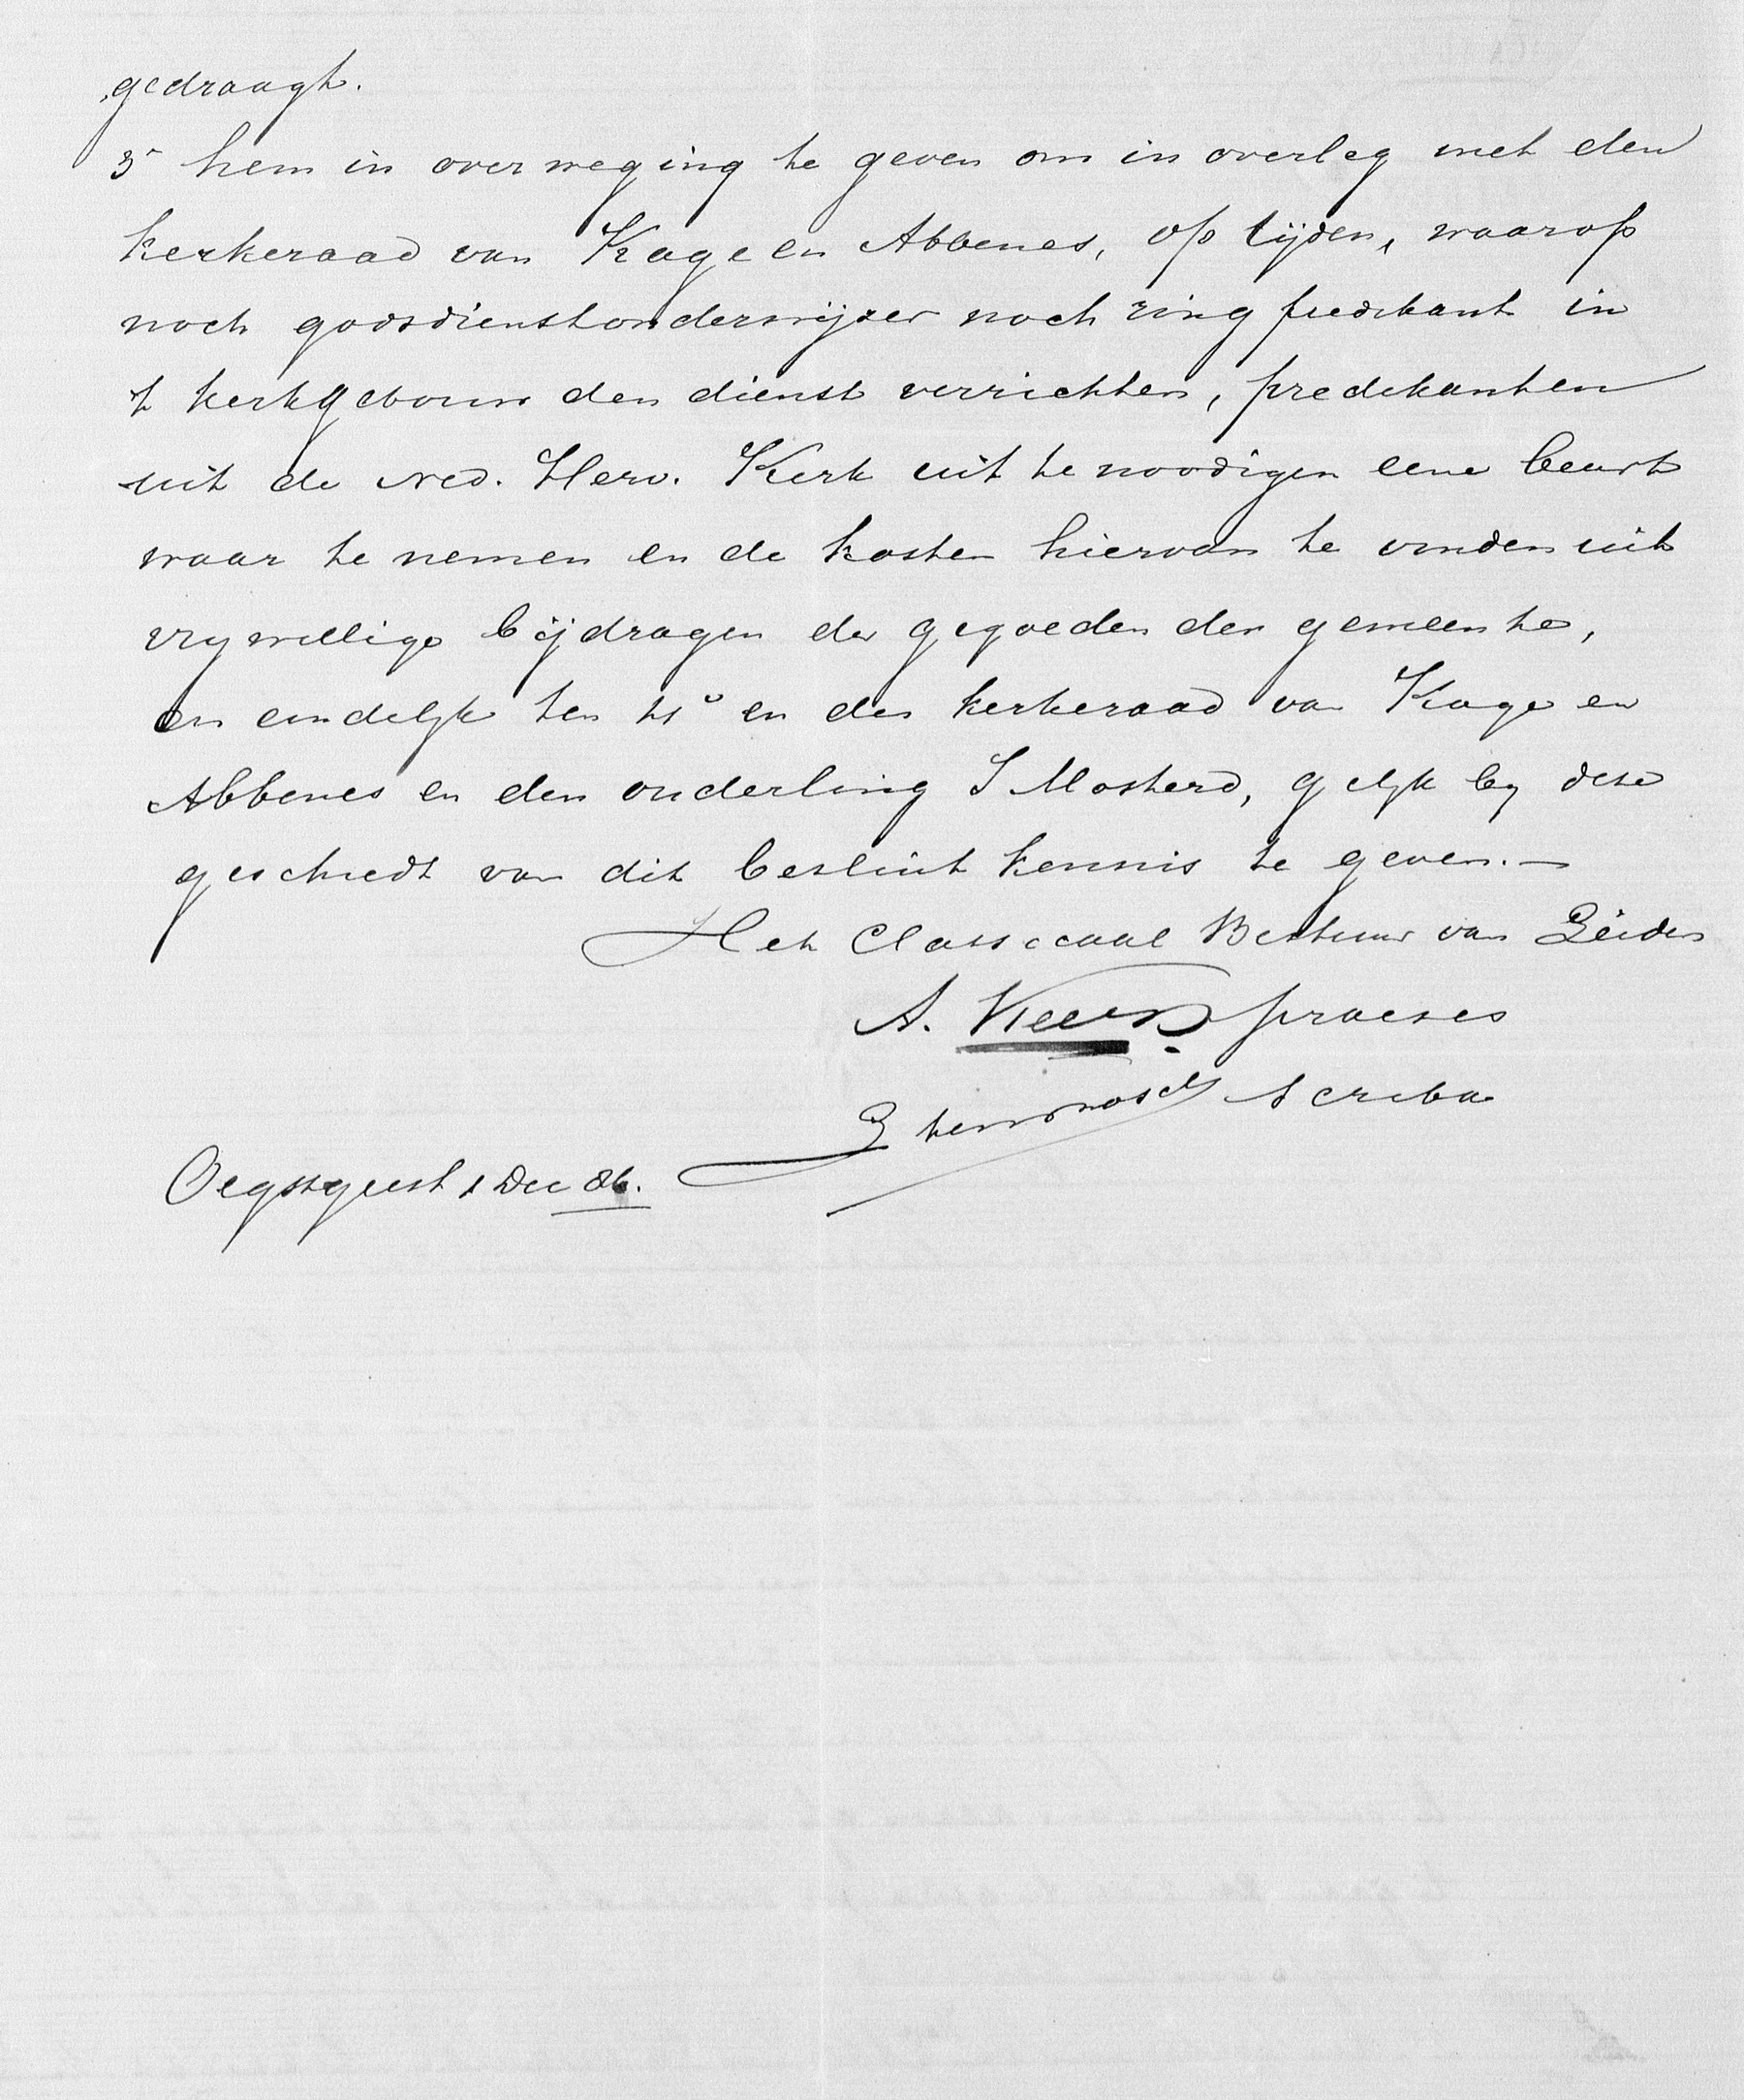 gedraagt.
3° hem in overweging te geven om in overleg met den
kerkeraad van Kage en Abbenes, op tijden, waarop
noch godsdienstonderwijzer noch ring predikant in
't kerkgebouw den dienst verrichten, predikanten
uit de Ned. Herv. Kerk uit te noodigen eene beurt
waar te nemen en de kosten hiervan te vinden uit
vrywillige bijdragen der gegoeden der gemeente,
en eindelyk ten 4° en den kerkeraad van Kage en
Abbenes en den ouderling J Mosterd, gelyk by deze
geschiedt van dit besluit kennis te geven. —
Het Classicaal Bestuur van Leiden
A. praeses
scriba
Oegstgeest 1 Dec 86.